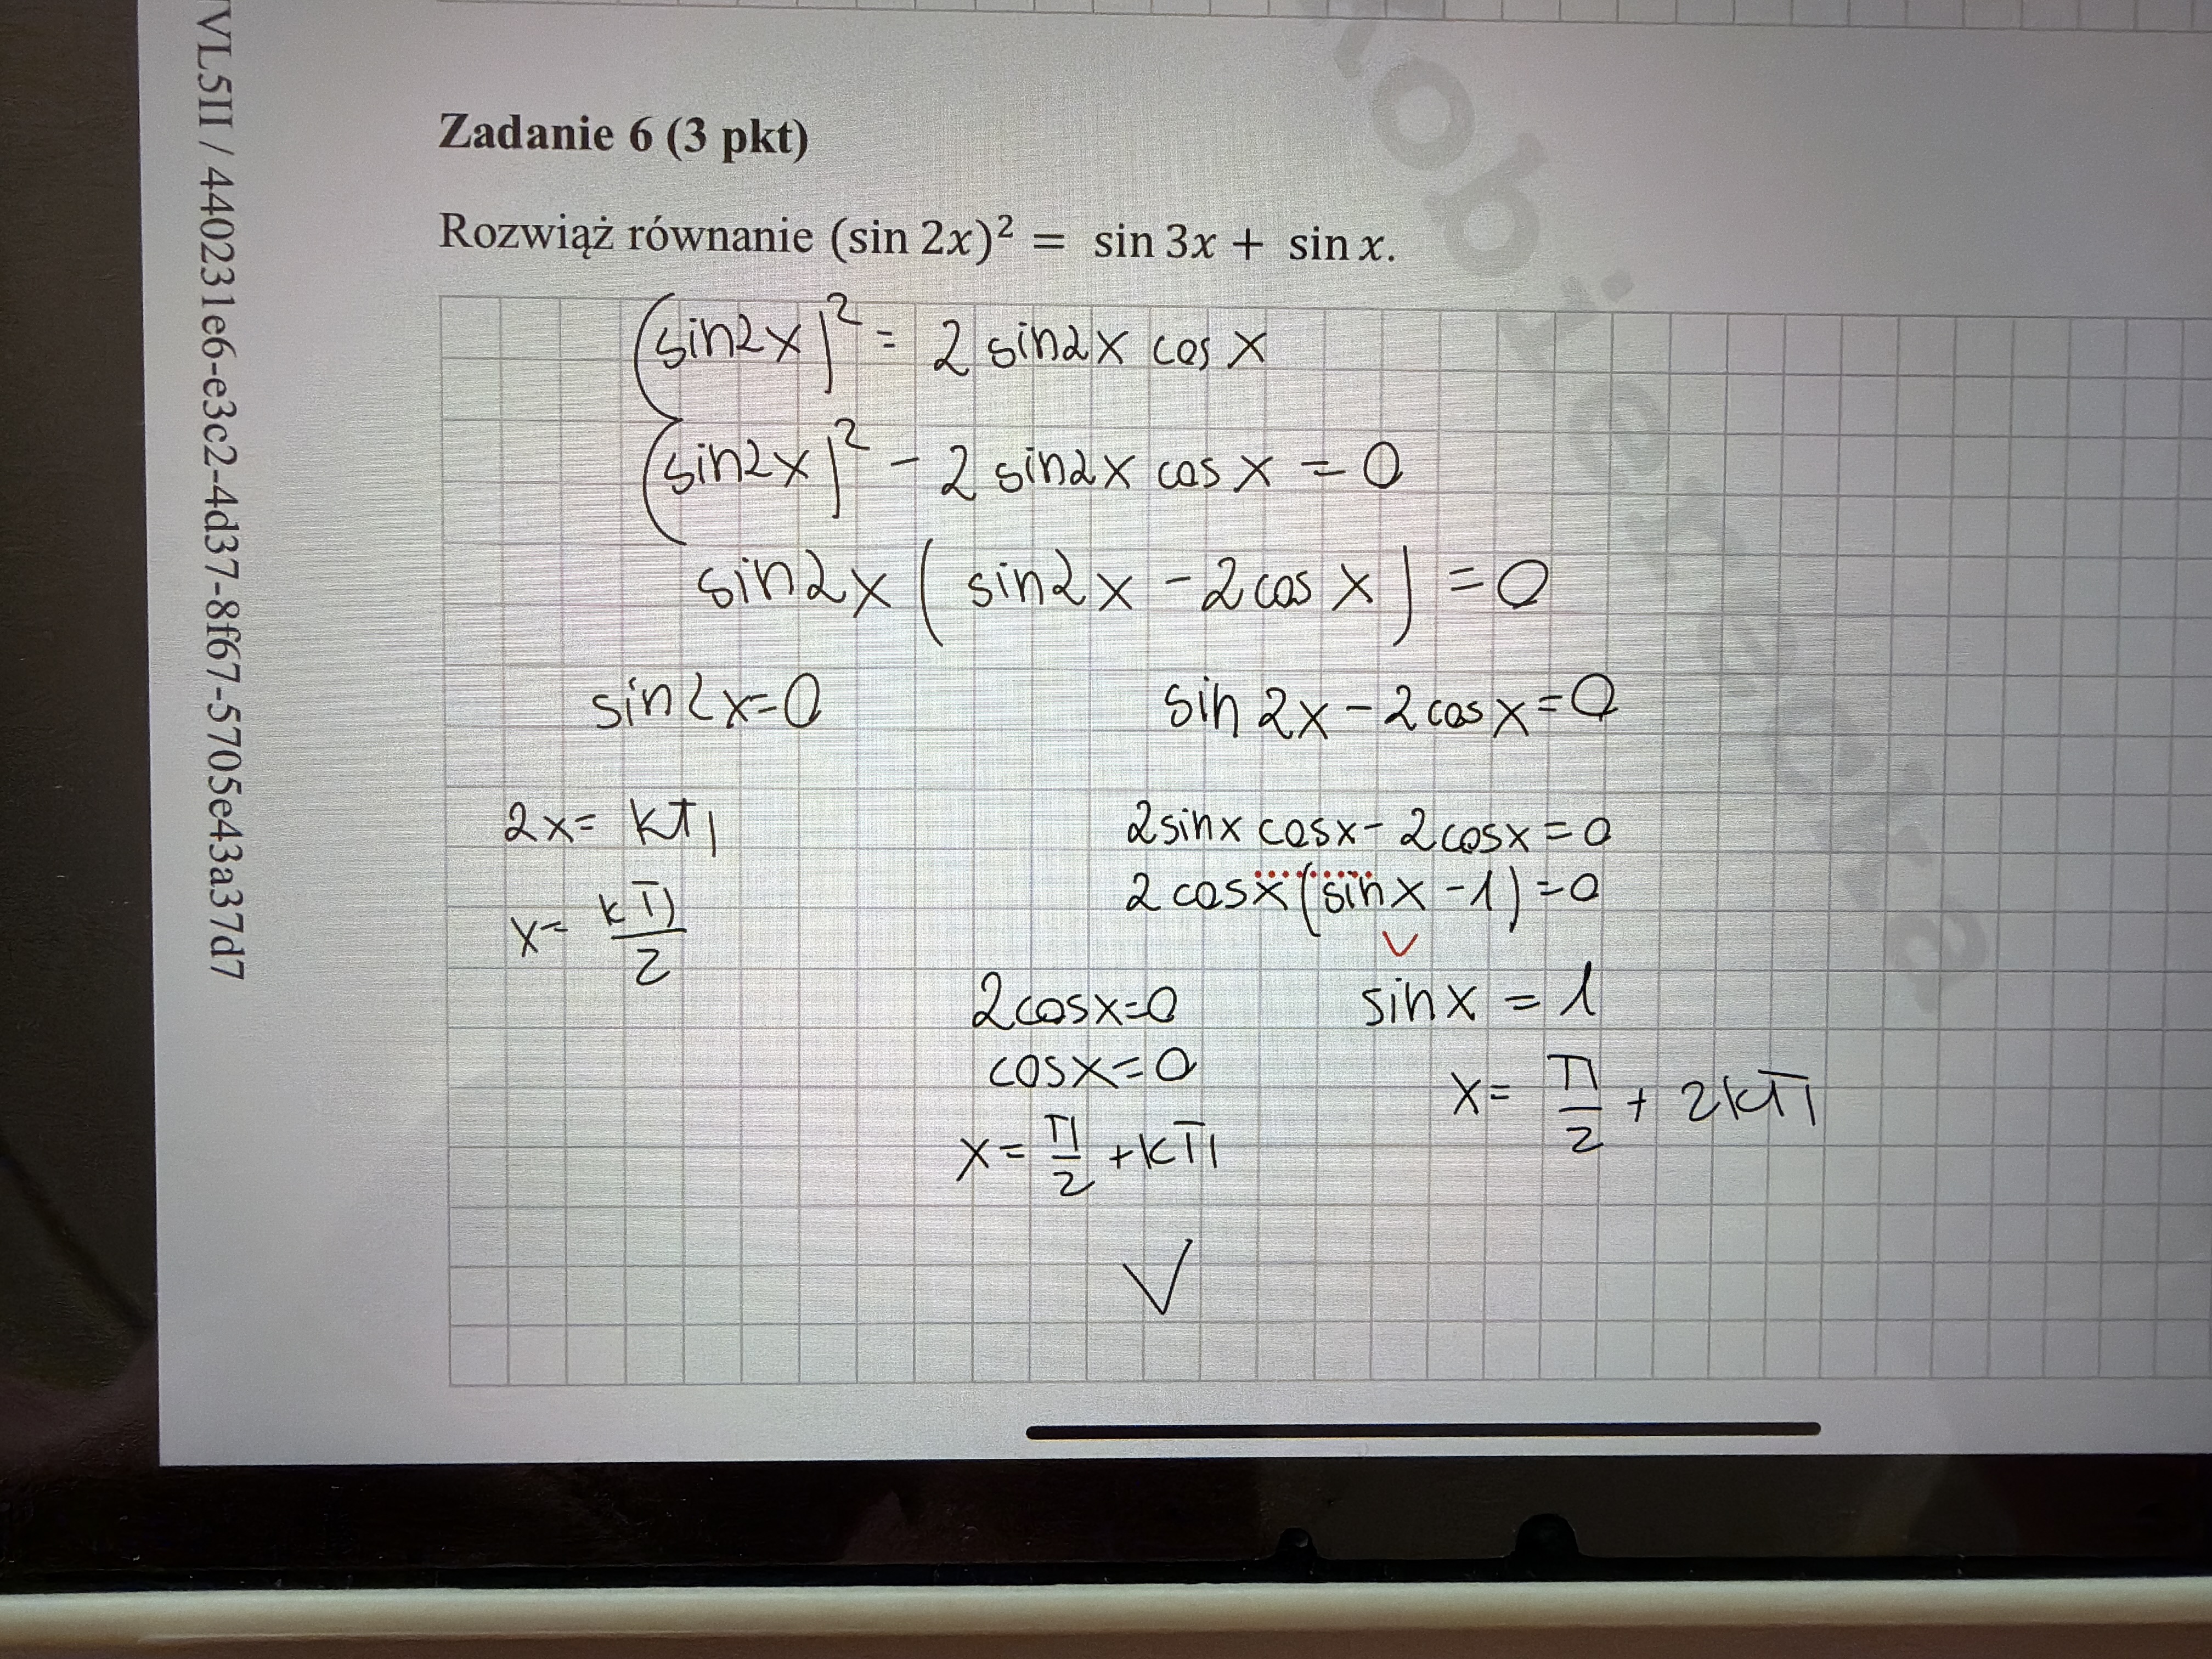 VL5II / 440231e6-e3c2-4d37-8f67-5705e43a37d7
Zadanie 6 (3 pkt)
Rozwiąż równanie (sin 2x)² = sin 3x + sin x.
(sin2x)² = 2 sin2x cos x
(sin2x)² - 2 sin2x cos x = 0
sin2x ( sin2x - 2cos x ) = 0
sin2x=0 sin 2x - 2cos x = 0
2x = kπ 2sinx cosx - 2cosx = 0
x = kπ/2 2 cosx (sin x - 1) = 0
∨
2cosx=0 sin x = 1
cosx=0 x = π/2 + 2kπ
x = π/2 + kπ
√